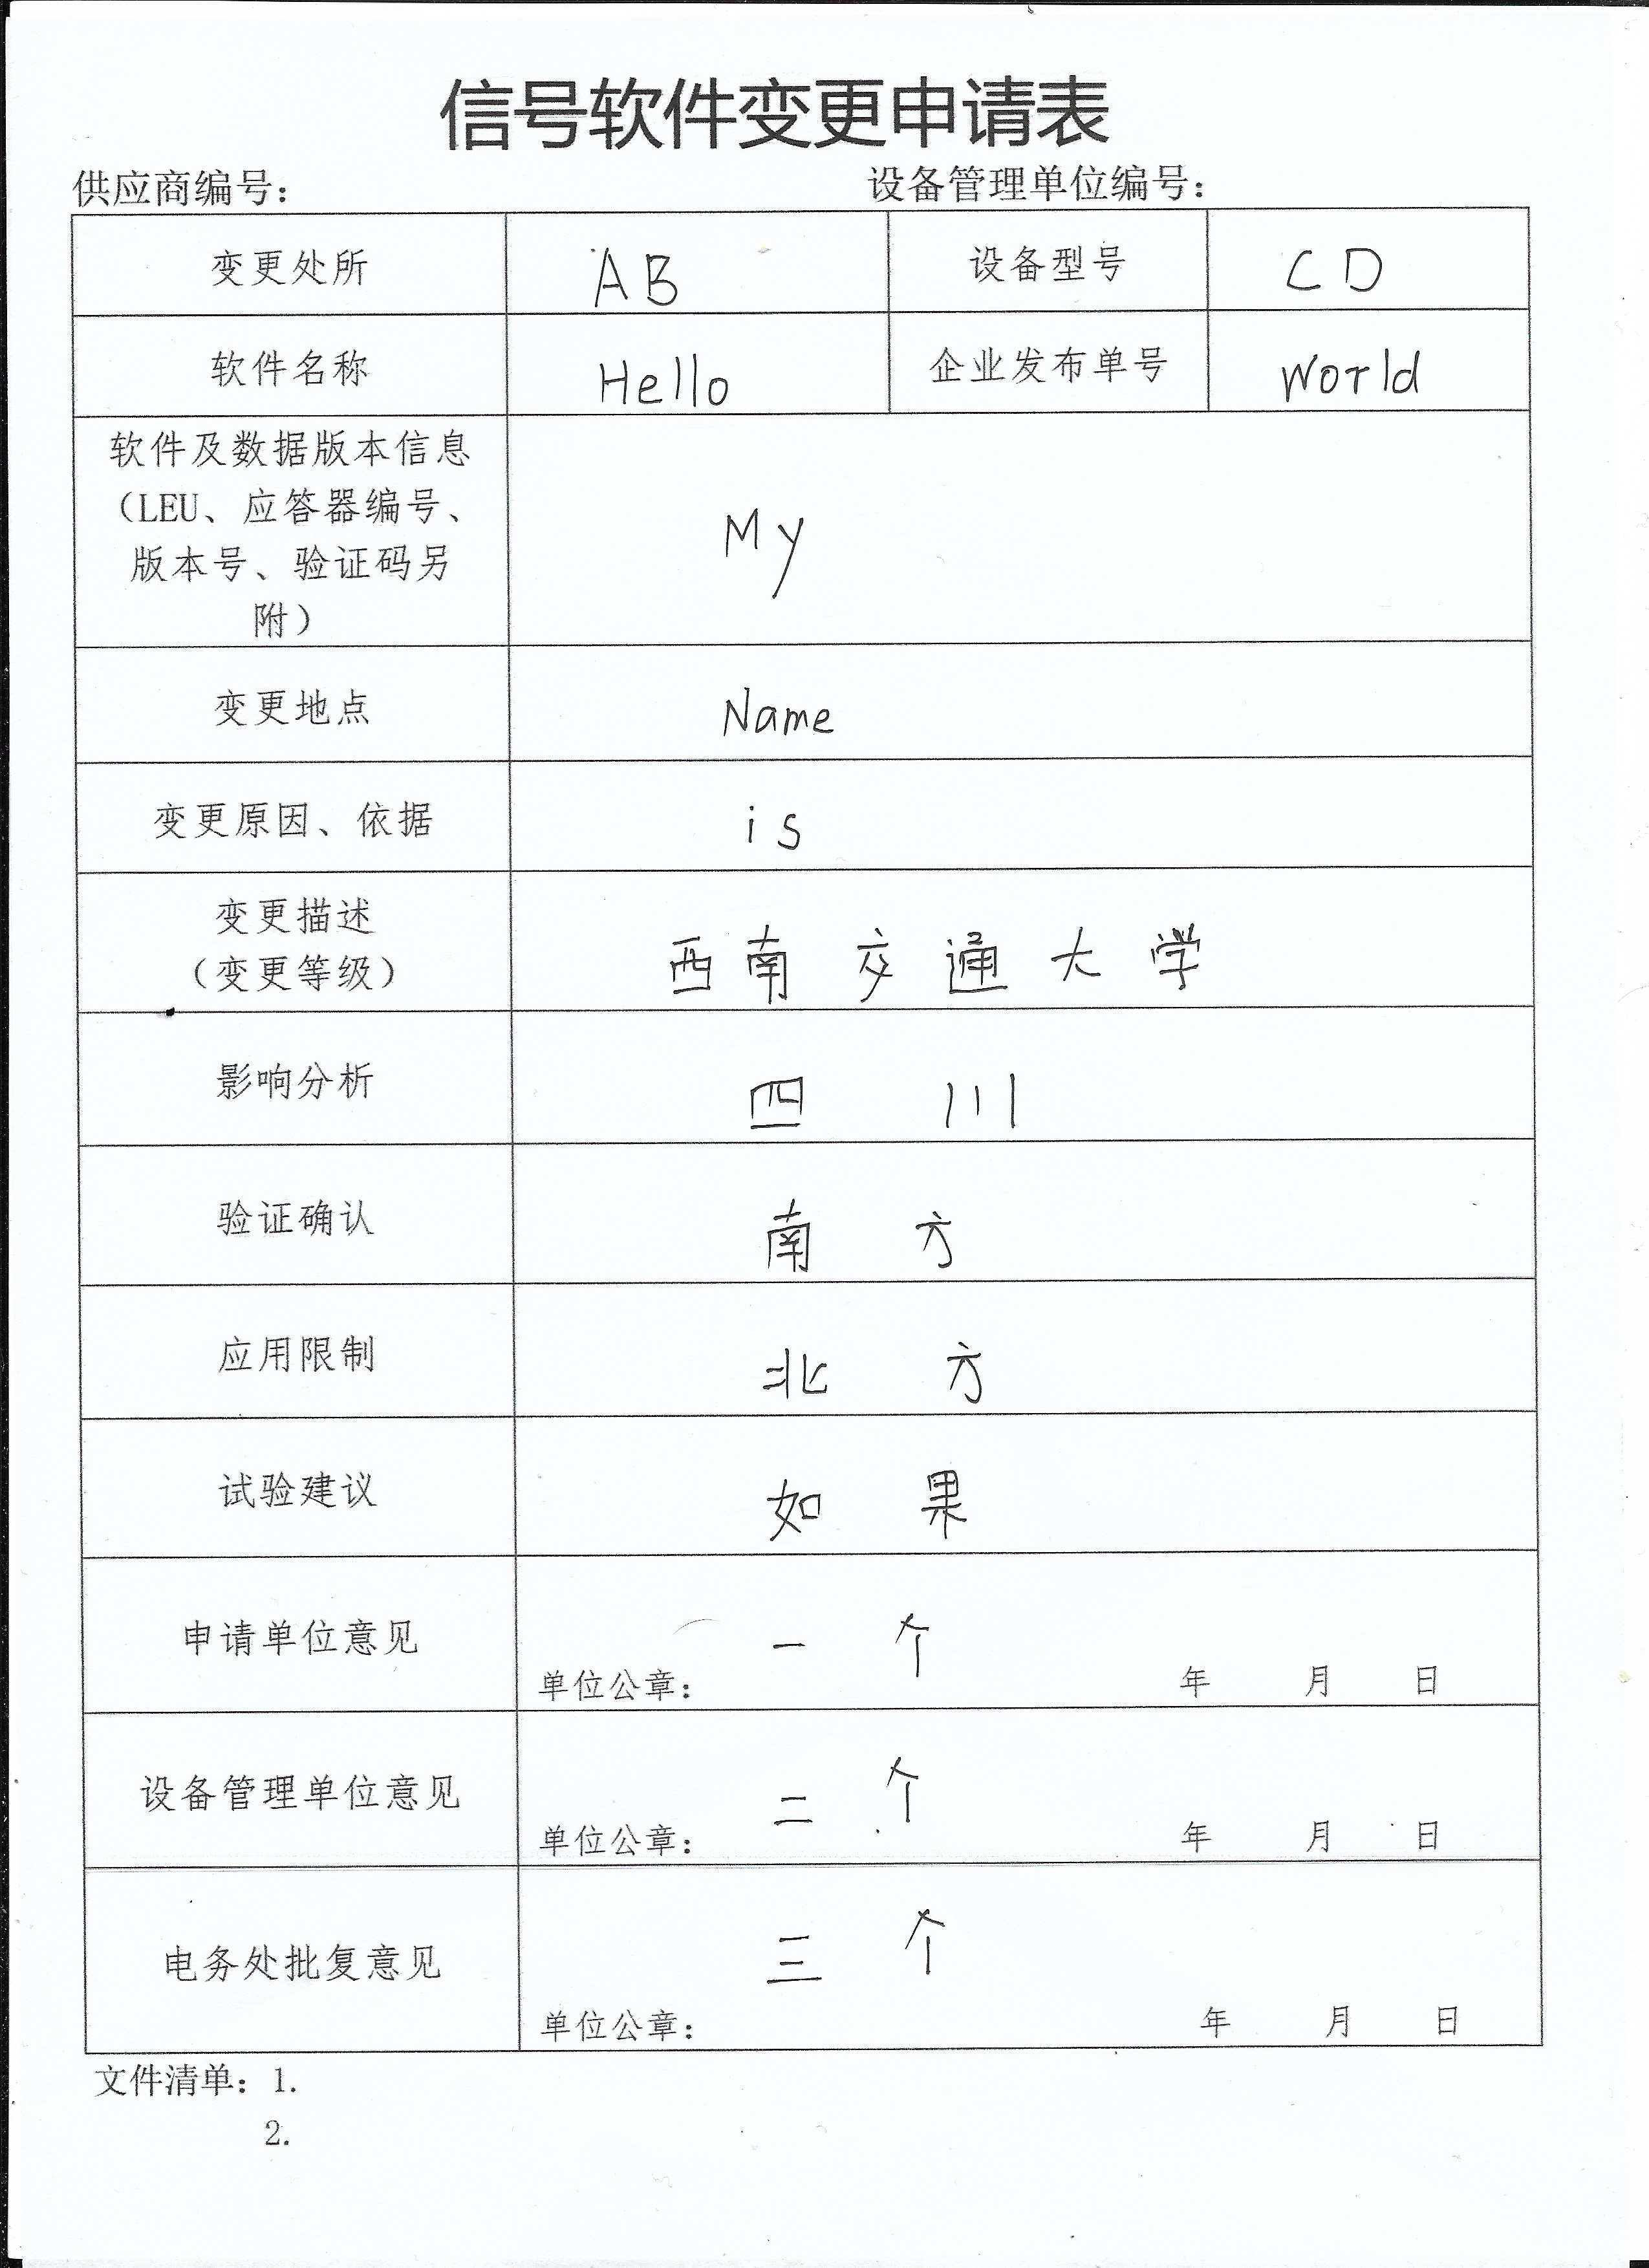 信号软件变更申请表
供应商编号: 设备管理单位编号:
变更处所 AB 设备型号 CD
软件名称 Hello 企业发布单号 World
软件及数据版本信息
（LEU、应答器编号、
版本号、验证码另
附）
My
变更地点 Name
变更原因、依据 is
变更描述
（变更等级）
西南交通大学
影响分析 四 川
验证确认 南 方
应用限制 北 方
试验建议 如 果
申请单位意见 一 个
单位公章: 年 月 日
设备管理单位意见 二 个
单位公章: 年 月 日
电务处批复意见 三 个
单位公章: 年 月 日
文件清单: 1.
2.